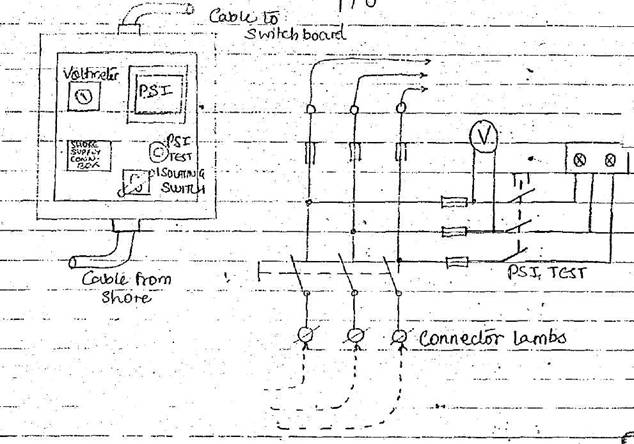 Cable to
Switchboard
Voltmeter
PSI
SHORE
SUPPLY
CONN.
BOX
PSI
TEST
ISOLATING
SWITCH
Cable from
Shore
V
PSI, TEST
Connector lambs